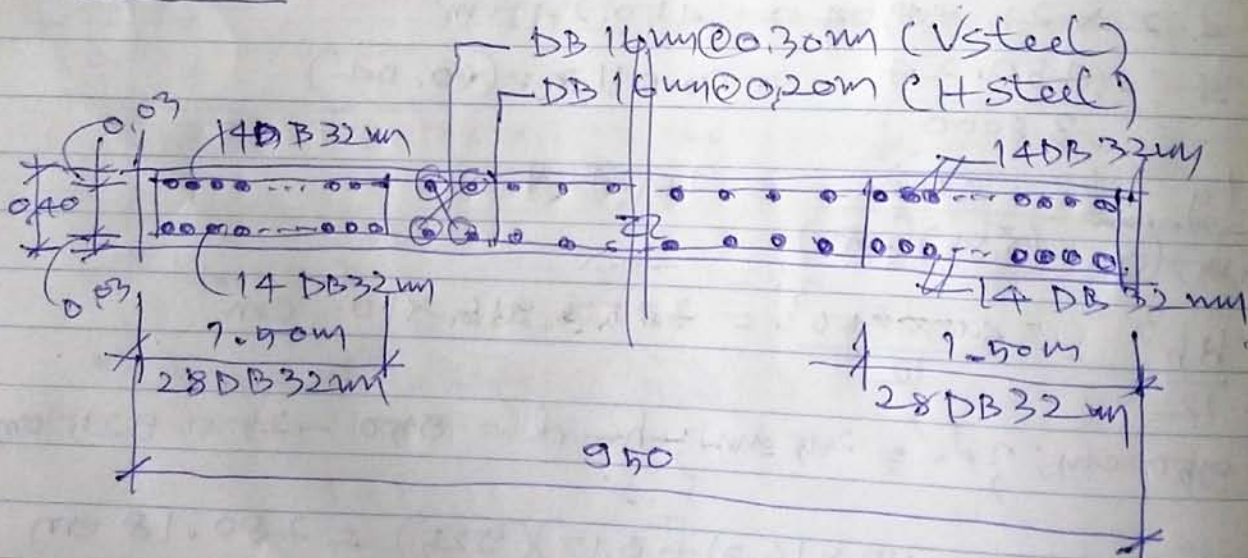 DB 16mm@0.30m (V Steel)
DB 16mm@0.20m (H Steel)
0.03
14DB32mm
14DB32mm
0.40
0.03
14 DB32mm
14 DB32mm
1.50m
1.50m
28DB32mm
28DB32mm
950